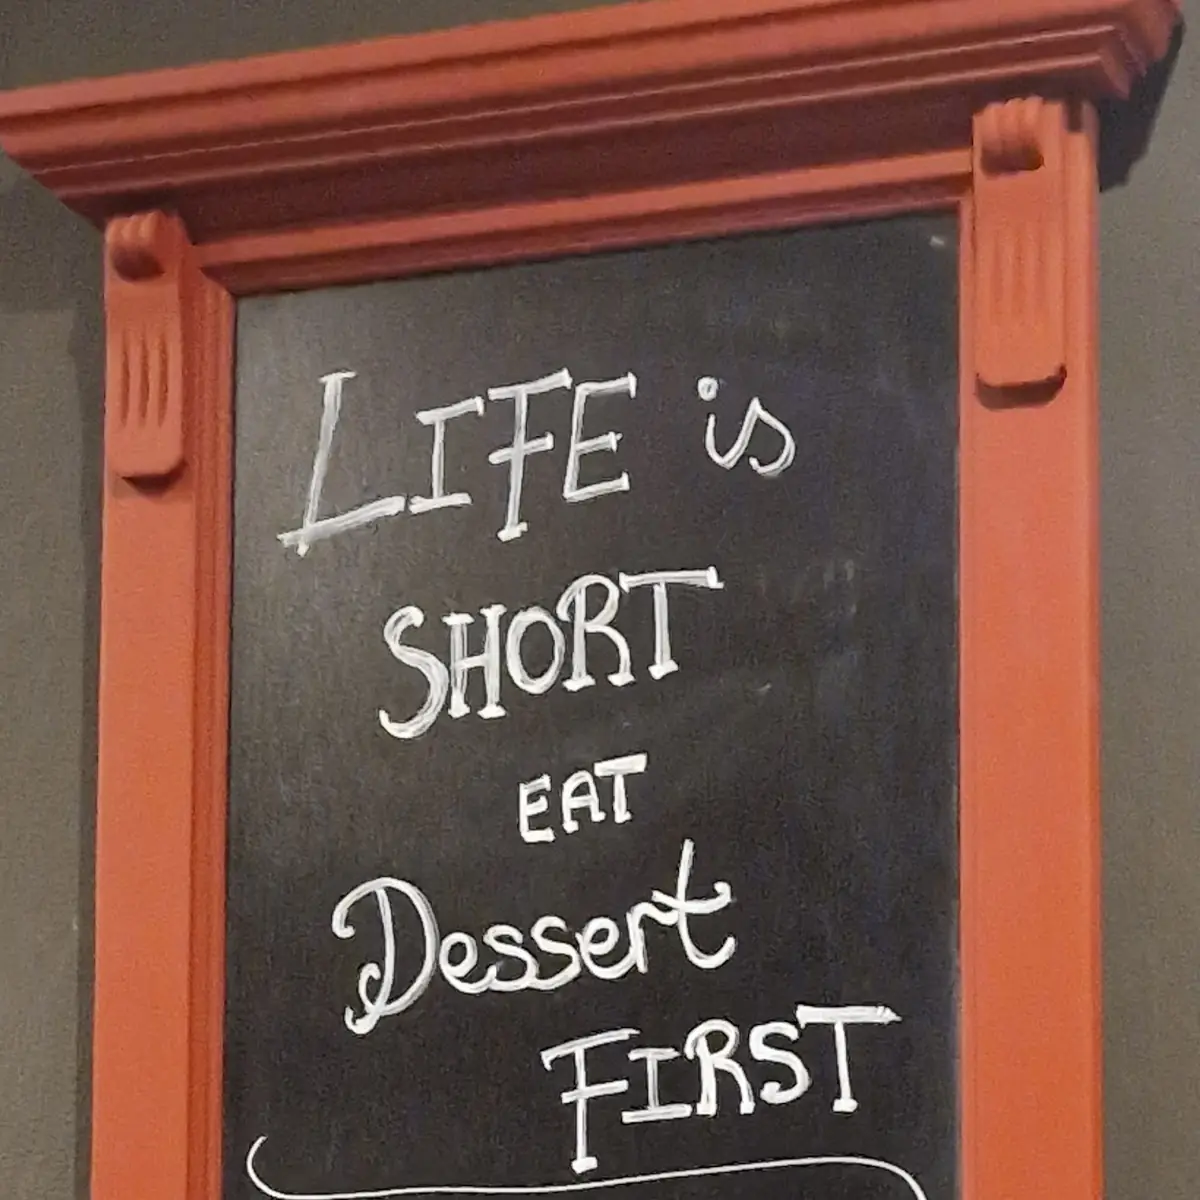 LIFE is
SHORT
EAT
Dessert
FIRST